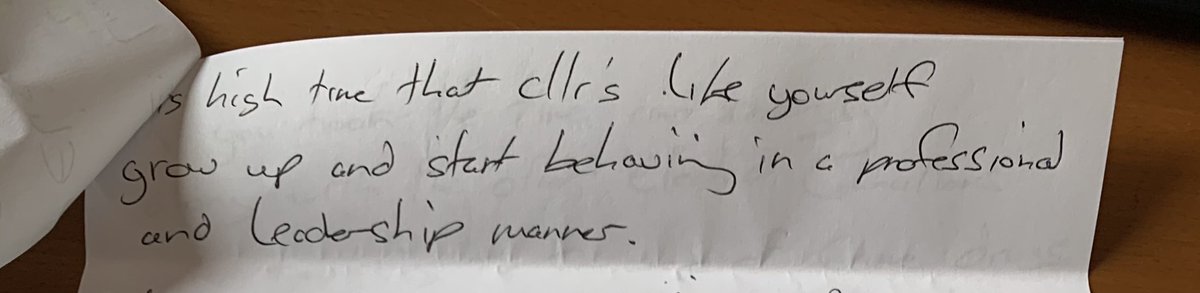 is high time that cllr's like yourself
grow up and start behaving in a professional
and leadership manner.